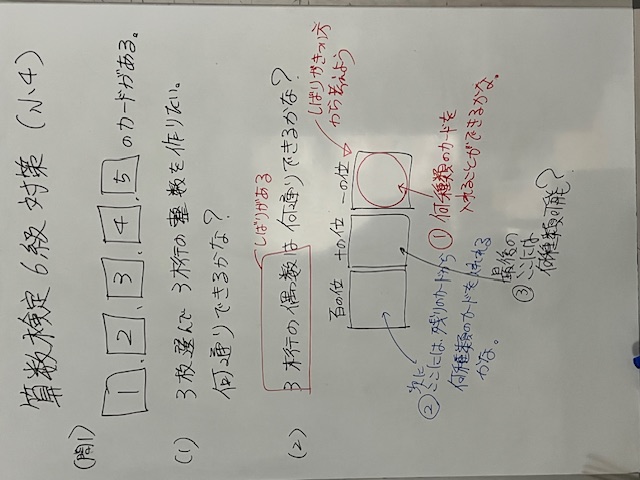 算数検定6級対策(小4)
(問1)
1, 2, 3, 4, 5 のカードがある。
(1) 3枚選んで3桁の整数を作りたい。
何通りできるかな?
しばりがある
(2) 3桁の偶数は何通りできるかな?
しばりがきつい方
から考えよう
百の位 十の位 一の位
① 何種類のカードを
入れることができるかな。
② 次に
ここには、残りのカードから
何種類のカードを入れれる
かな。
③ 最後の
ここには
何種類可能?